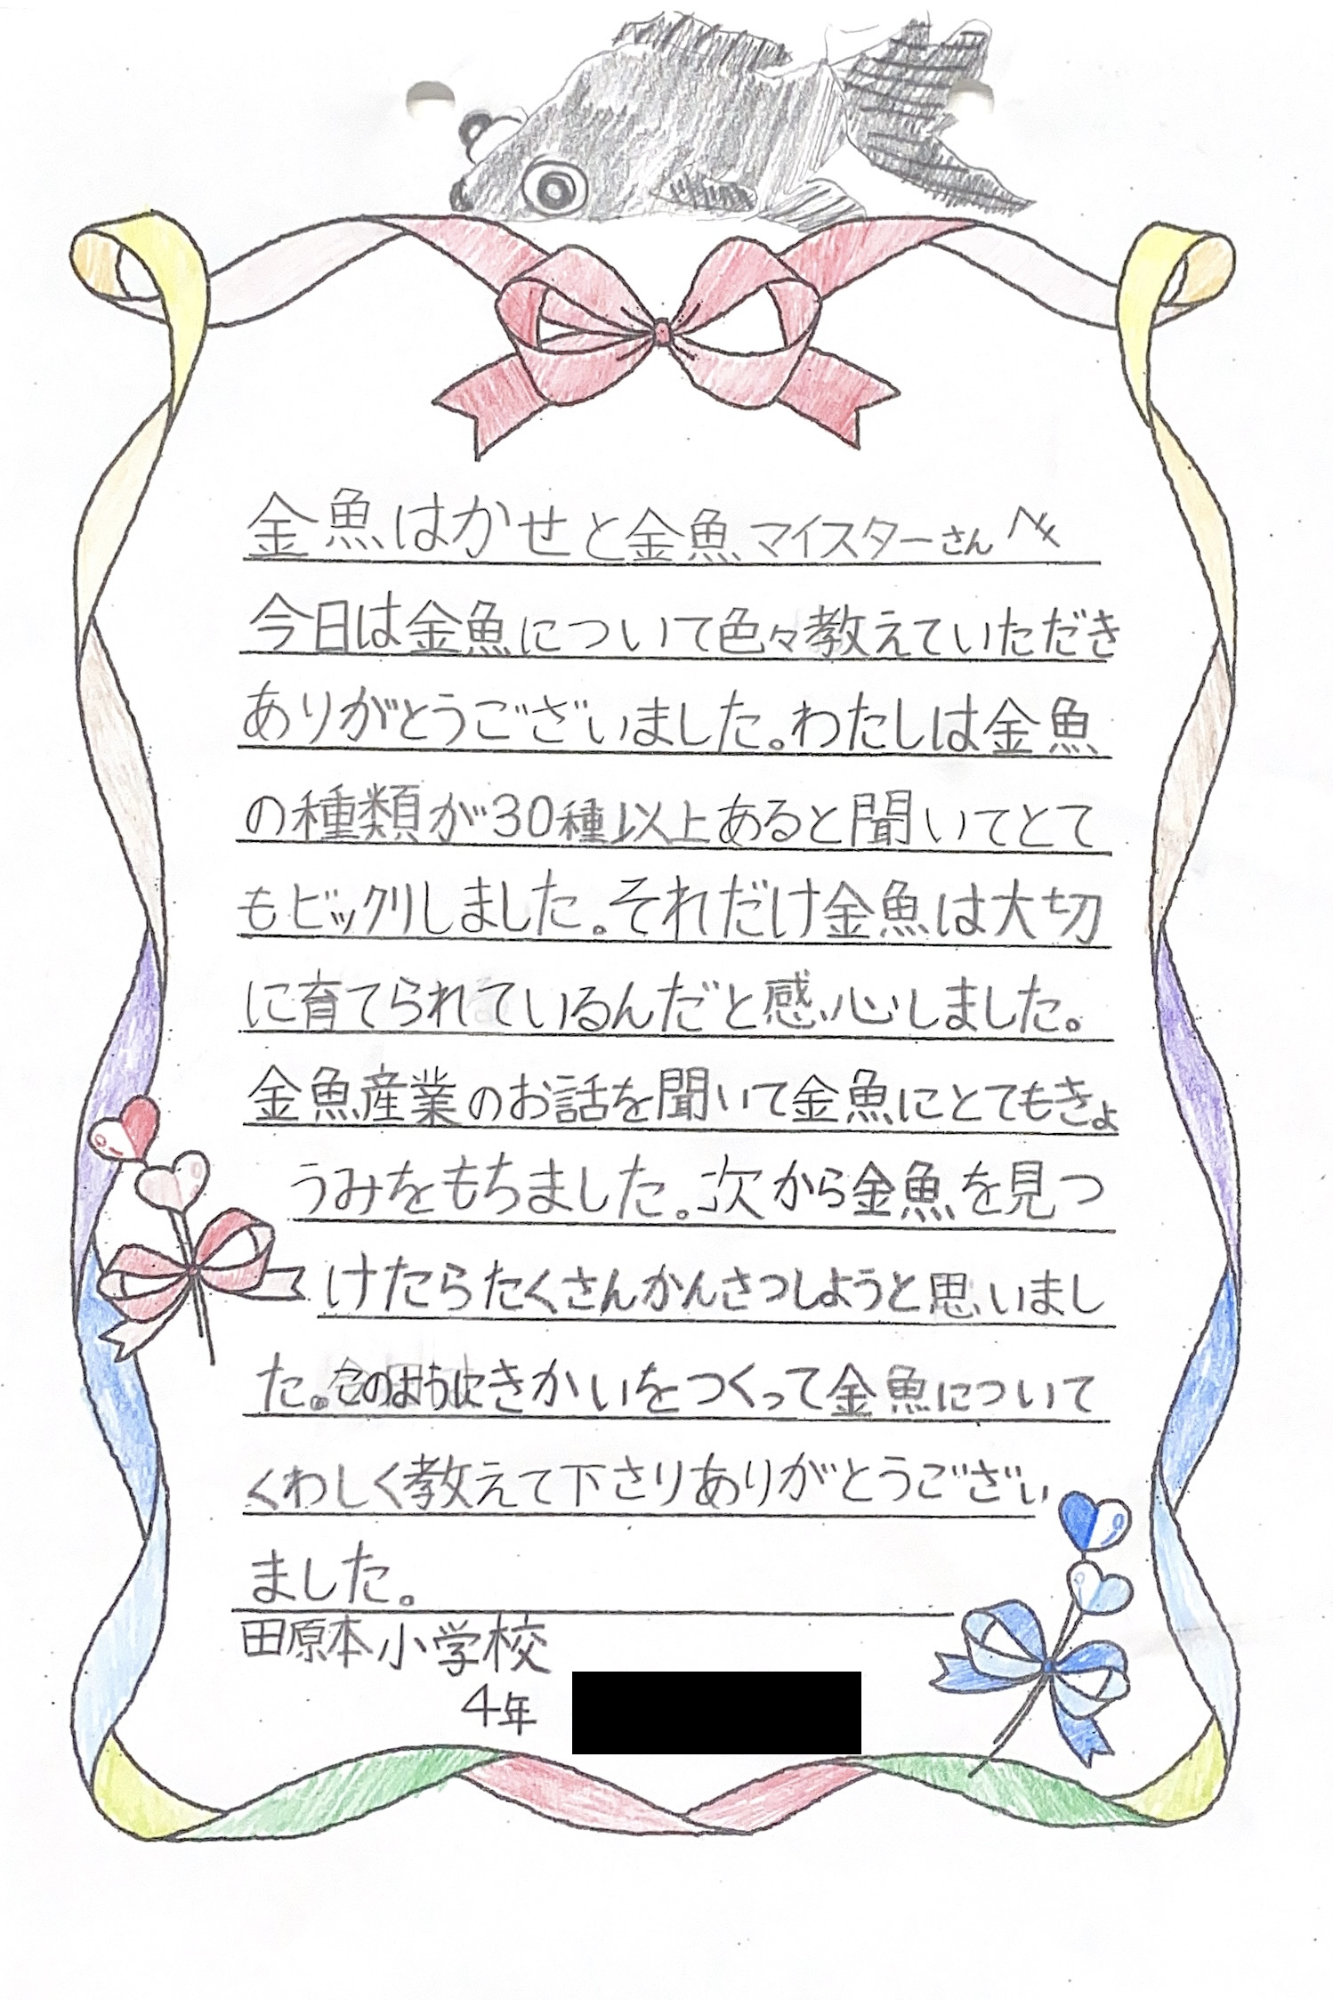 金魚はかせと金魚マイスターさんへ
今日は金魚について色々教えていただき
ありがとうございました。わたしは金魚
の種類が30種以上あると聞いてとて
もビックリしました。それだけ金魚は大切
に育てられているんだと感心しました。
金魚産業のお話を聞いて金魚にとてもきょ
うみをもちました。次から金魚を見つ
けたらたくさんかんさつしようと思いまし
た。このようなきかいをつくって金魚について
くわしく教えて下さりありがとうござい
ました。
田原本小学校
4年